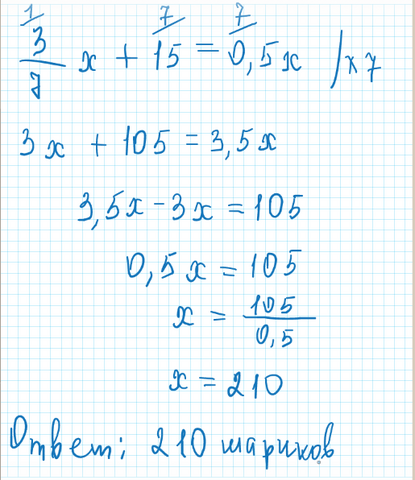 1/ 7/ 7/
3/7 x + 15 = 0,5x /x7
3x + 105 = 3,5x
3,5x - 3x = 105
0,5x = 105
x = 105/0,5
x = 210
Ответ: 210 шариков